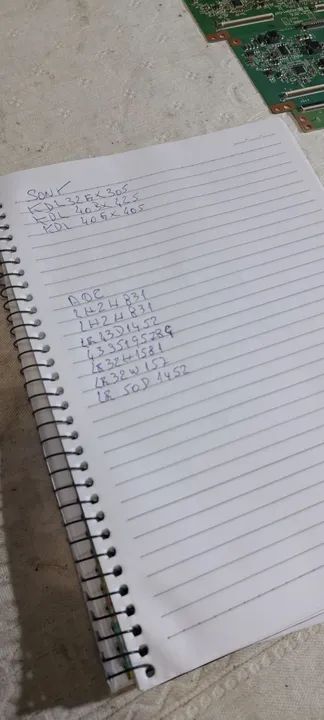 SONY
KDL 32EX305
KDL 40BX425
KDL 40EX405
AOC
LH2H831
LH2H831
LE43D1452
LE32H158I
LE32W157
LE50D1452